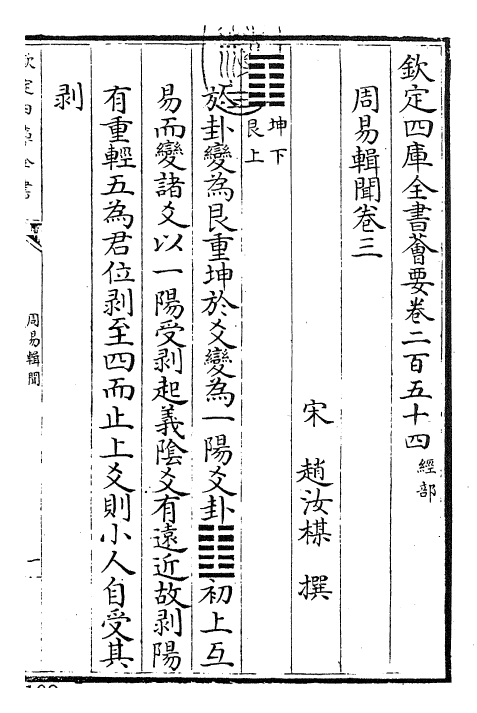 欽定四庫全書薈要卷二百五十四 經部
周易輯聞卷三
宋 趙汝楳 撰
䷖ 坤下
艮上
於卦變為艮重坤於爻變為一陽爻卦初上互
易而變諸爻以一陽受剥起義陰爻有遠近故剥陽
有重輕五為君位剥至四而止上爻則小人自受其
剥
欽定四庫全書
周易輯聞
一